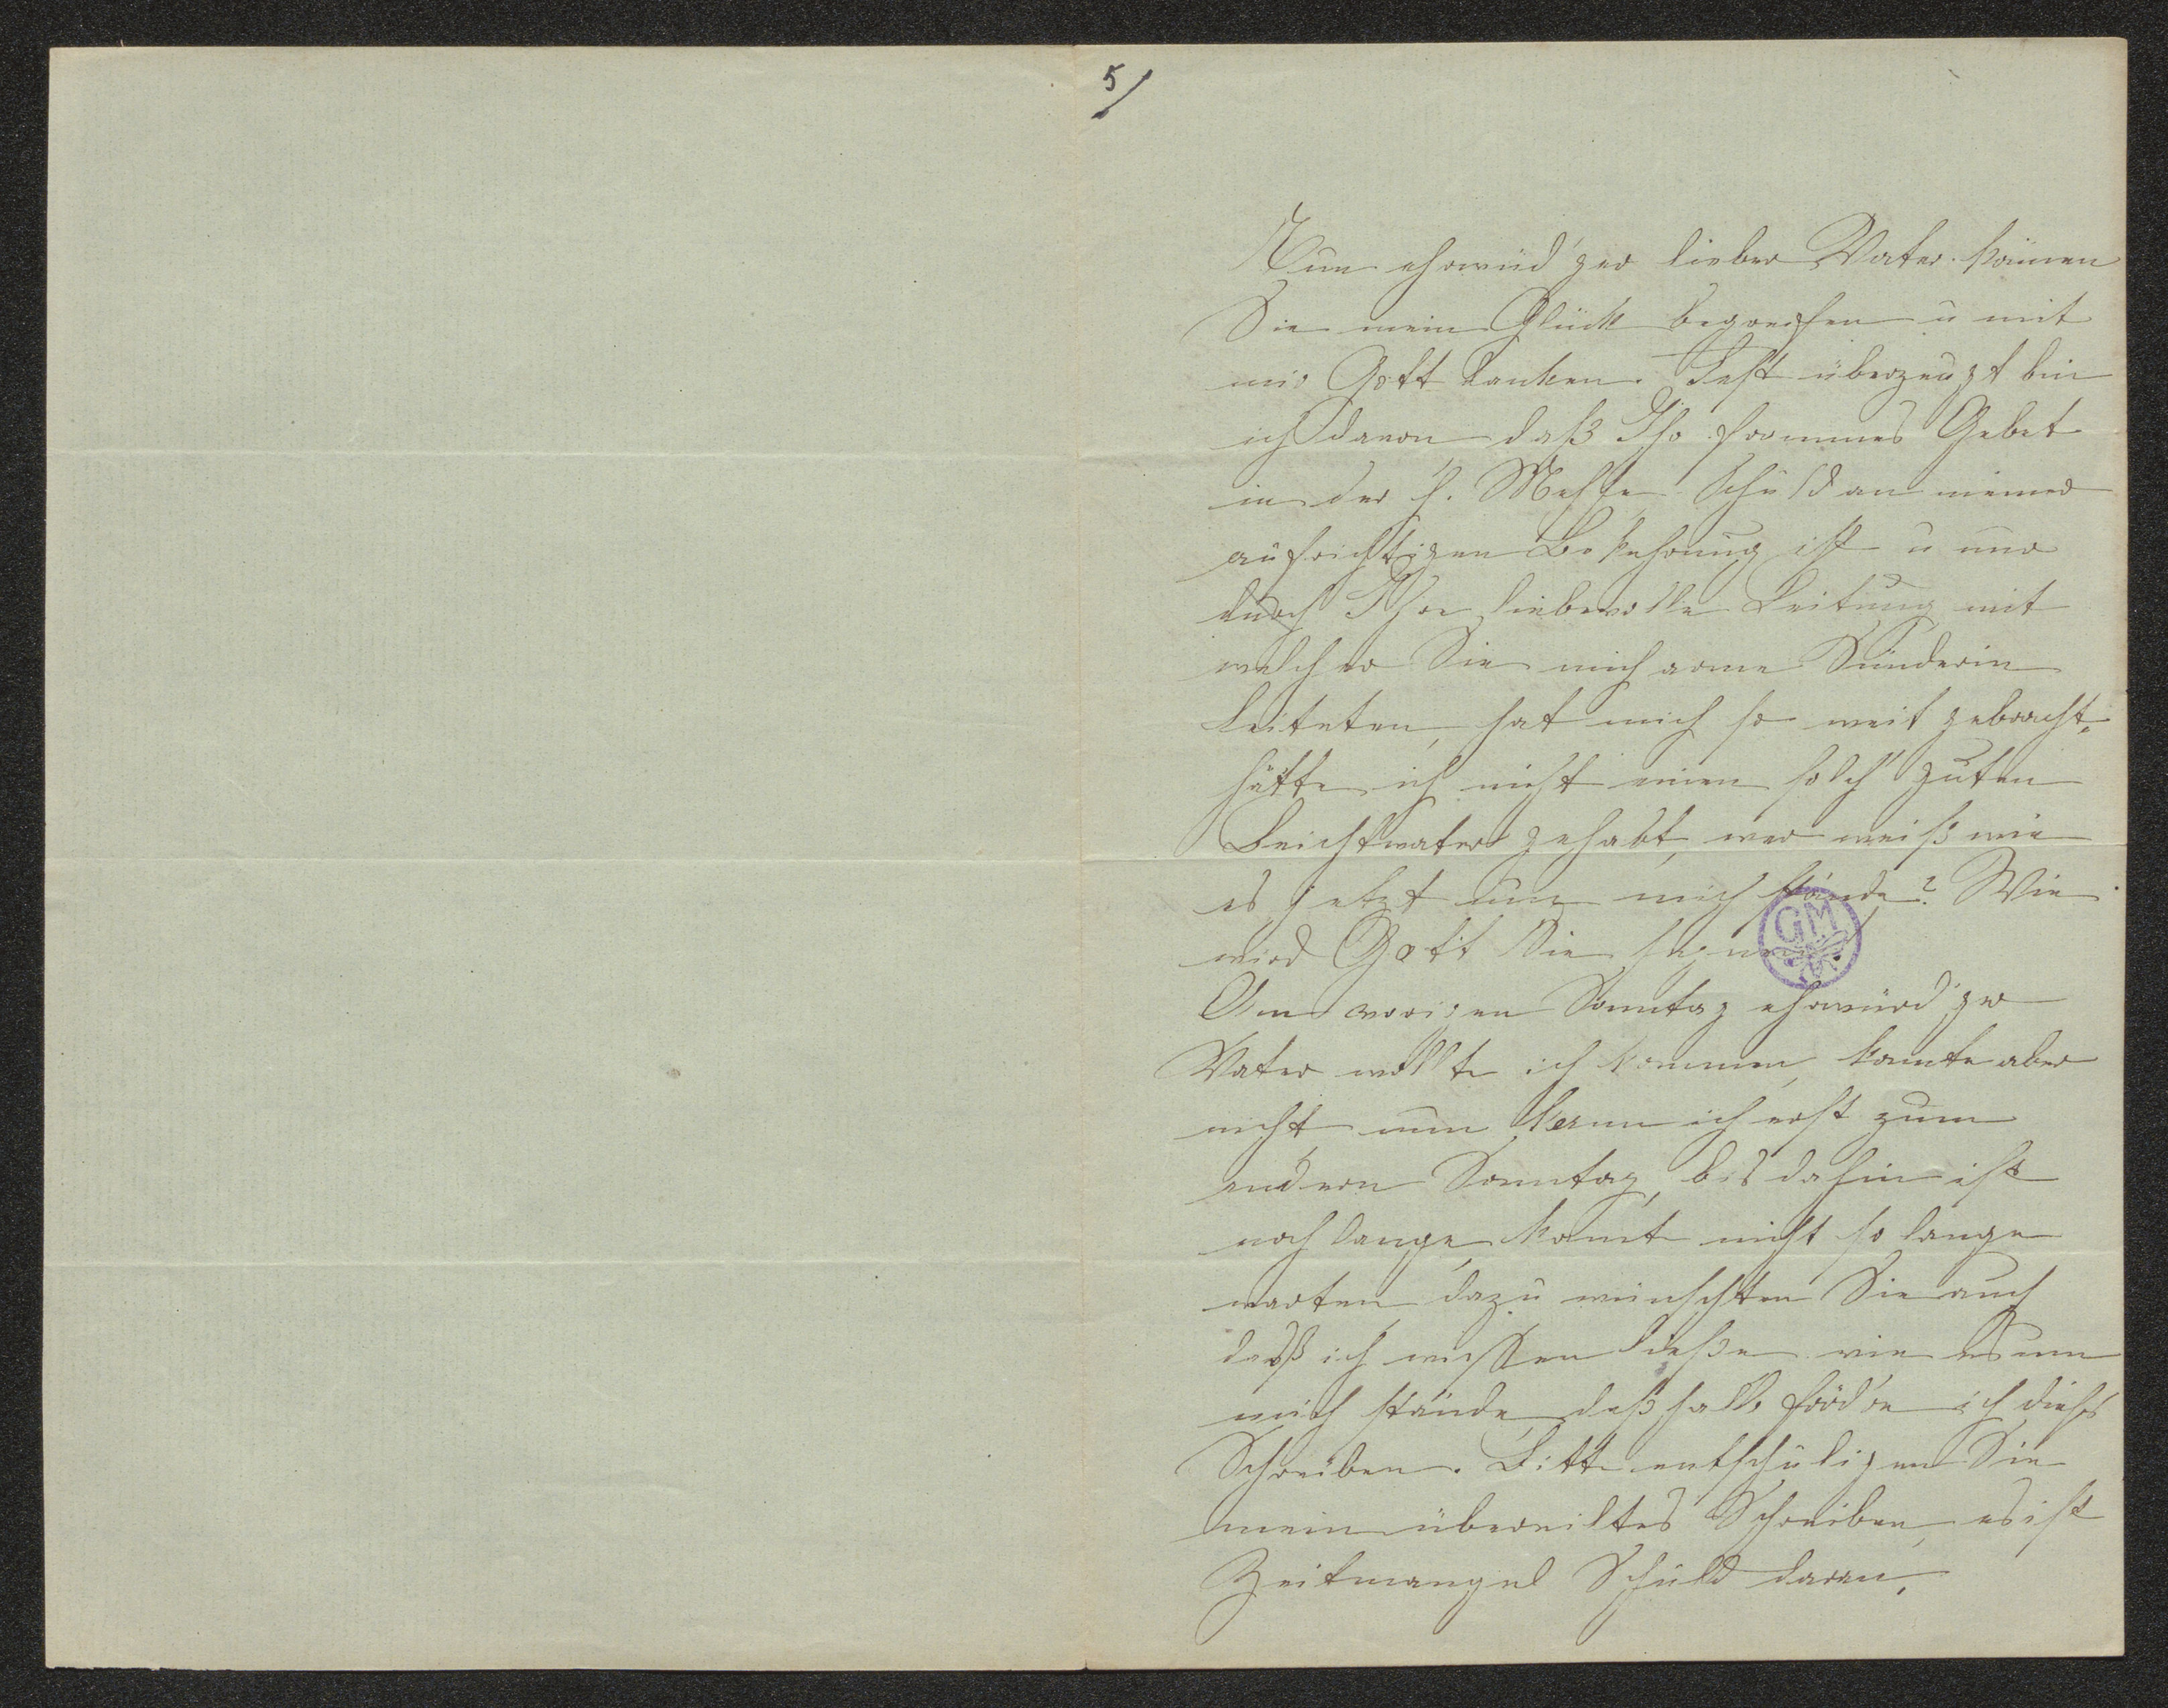 5/
Nun ehrwürd'ger lieber Vater könen
Sie mein Glück begreifen u mit
mir Gott danken. Fest überzeugt bin
ich davon daß Ihr frommes Gebet
in der h. Messe Schuld an meiner
aufrichtigen Bekehrung ist u nur
durch Ihre liebevolle Leitung mit
welcher Sie mich arme Sünderin
leiteten, hat mich so weit gebracht.
hätte ich nicht einen solch' guten
Beichtvater gehabt, wer weiß wie
es jetzt um mich stände? Wie
wird Gott Sie segnen!
GM
Am vorigen Sonntag ehrwürd'ger
Vater wollte ich kommen, konnte aber
nicht nun kann ich erst zum
andern Sonntag, bis dahin ist
noch lange, konnt nicht so lange
warten, dazu wünschten Sie auch
daß ich wissen ließe wie es um
mich stände, deßhalb ich dieses
Schreiben. Bitte entschuligen Sie
mein übereiltes Schreiben, es ist
Zeitmangel Schuld daran.